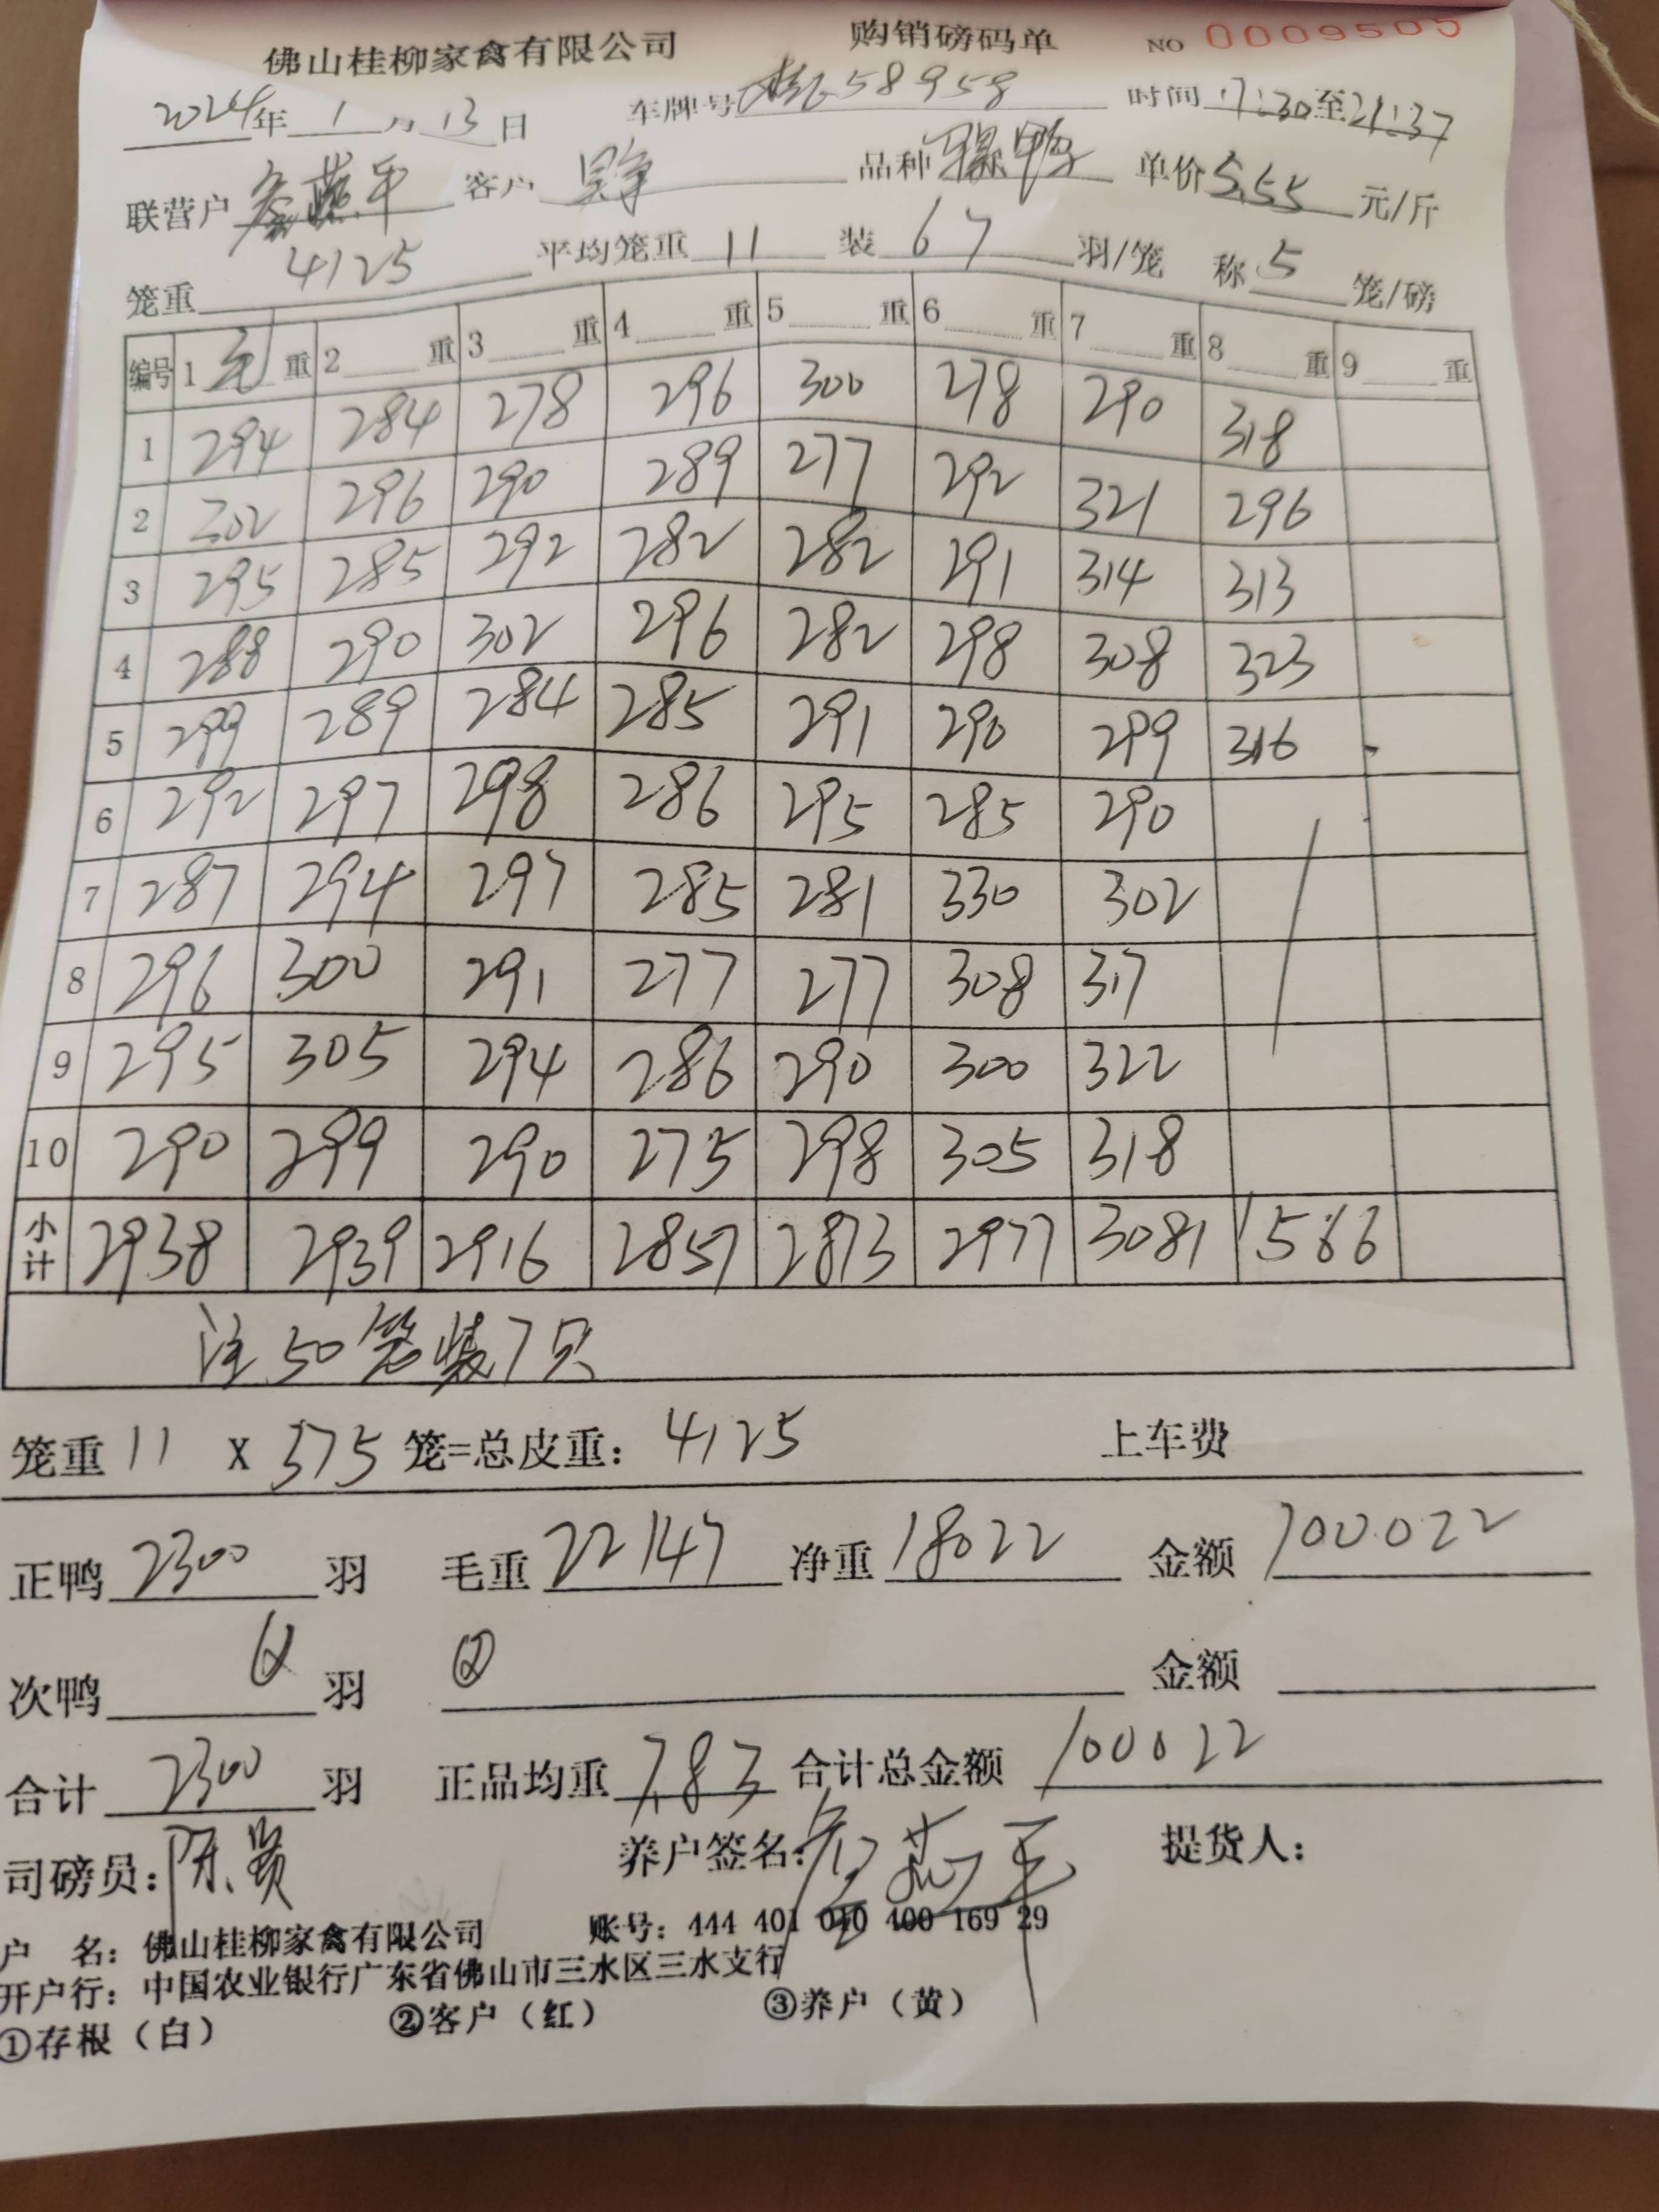 佛山桂柳家禽有限公司 购销磅码单 NO 0009505
2024年 1 月 13 日 车牌号 58958 时间 17:30 至 21:37
联营户 詹燕平 客户 品种 骡鸭 单价 5.55 元/斤
笼重 4125 平均笼重 11 装 6 7 羽/笼 称 5 笼/磅
编号 1 毛 重 2 重 3 重 4 重 5 重 6 重 7 重 8 重 9 重
1 294 284 278 296 300 278 290 318
2 302 296 290 289 277 292 321 296
3 295 285 292 282 282 291 314 313
4 288 290 302 296 282 298 308 323
5 299 289 284 285 291 290 299 316
6 292 297 298 286 295 285 290
7 287 294 297 285 281 330 302
8 296 300 291 277 277 308 317
9 295 305 294 286 290 300 322
10 290 299 290 275 298 305 318
小计 2938 2939 2916 2857 2873 2977 3081 1566
注 50笼装7只
笼重 11 X 375 笼=总皮重: 4125 上车费
正鸭 2300 羽 毛重 22147 净重 18022 金额 100022
次鸭 羽 金额
合计 2300 羽 正品均重 7.83 合计总金额 100022
司磅员: 陈贤 养户签名: 詹燕平 提货人:
户 名: 佛山桂柳家禽有限公司 账号: 444 401 040 400 169 29
开户行: 中国农业银行广东省佛山市三水区三水支行
①存根（白） ②客户（红） ③养户（黄）